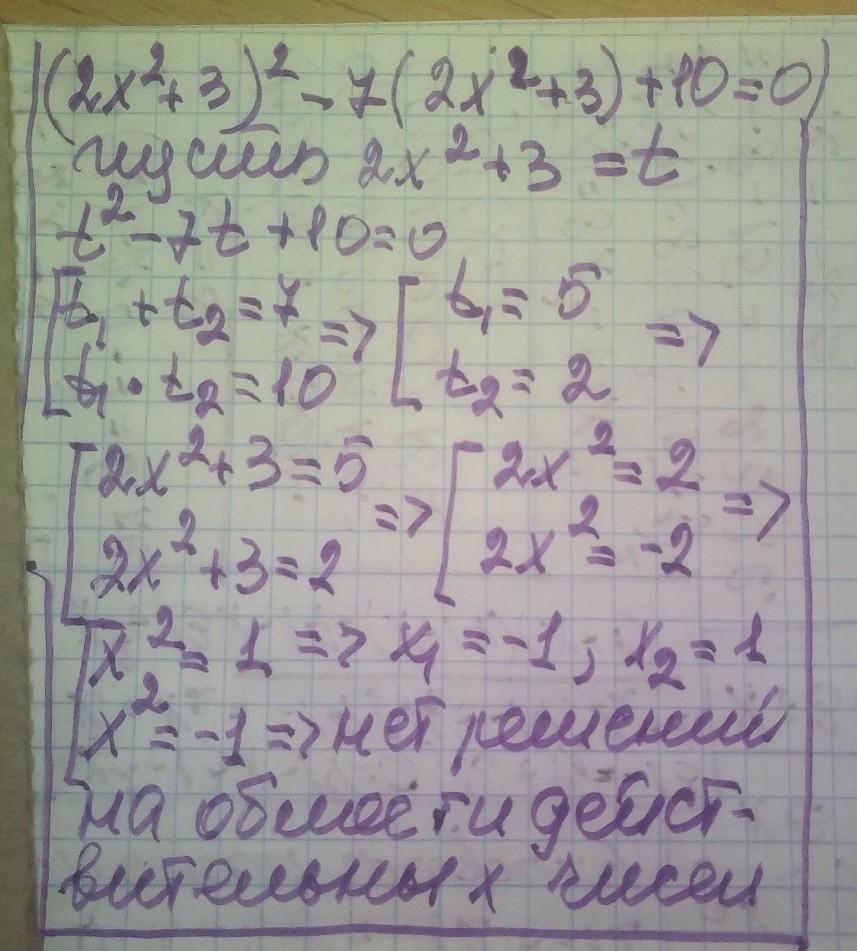 (2x²+3)²-7(2x²+3)+10=0
пусть 2x²+3=t
t²-7t+10=0
[t₁+t₂=7 => [t₁=5 =>
t₁·t₂=10 t₂=2
[2x²+3=5 => [2x²=2 =>
2x²+3=2 2x²=-2
[x²=1 => x₁=-1; x₂=1
x²=-1 => нет решений
на области дейст-
вительных чисел